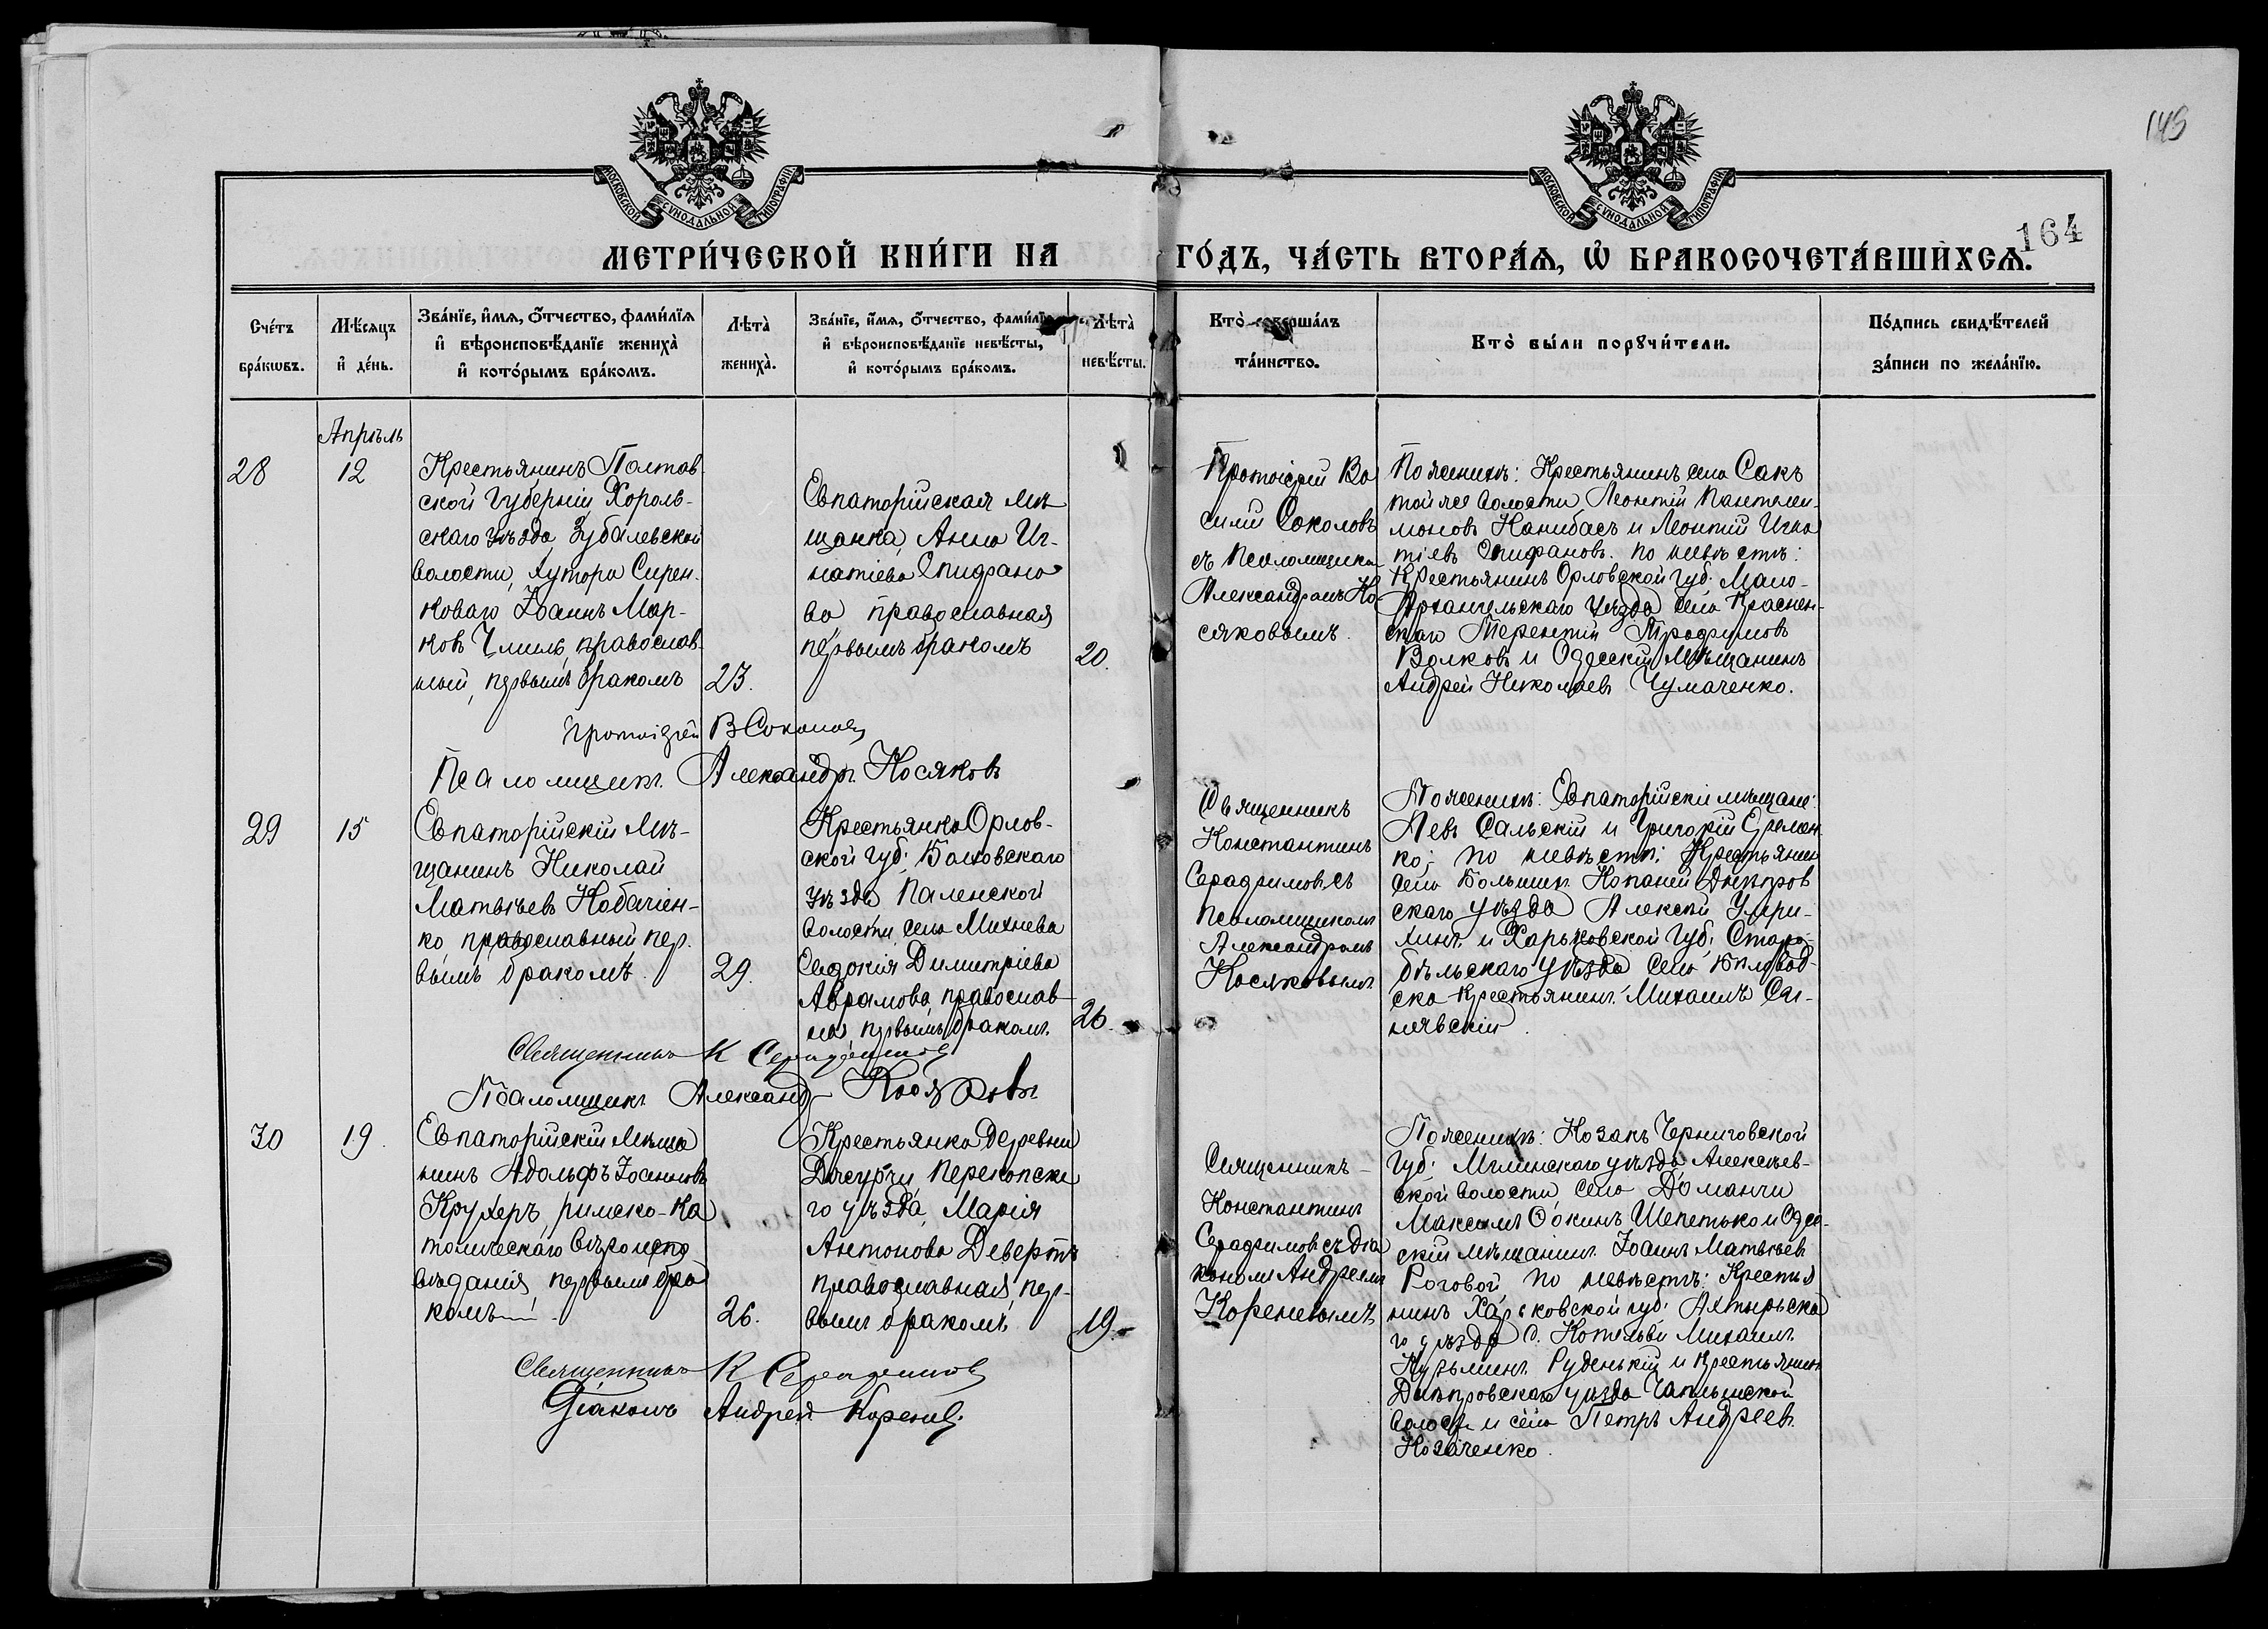 149
МОСКОВСКОЙ СѴНОДАЛЬНОЙ ТИПОГРАФІИ
МОСКОВСКОЙ СѴНОДАЛЬНОЙ ТИПОГРАФІИ
164
МЕТРИ́ЧЕСКОЙ КНИ́ГИ НА ГО́ДЪ, ЧА́СТЬ ВТОРА́Я, Ѡ БРАКОСОЧЕТА́ВШИХСЯ.
Сче́тъ
бра́кѡвъ.
Мѣ́сяцъ
и҆ де́нь.
Зва́нїе, и҆́мя, ѻ҆́тчество, фами́лїя
и҆ вѣроисповѣ́данїе жениха̀
и҆ кото́рымъ бра́комъ.
Лѣта̀
жениха̀.
Зва́нїе, и҆́мя, ѻ҆́тчество, фами́лїя
и҆ вѣроисповѣ́данїе невѣ́сты,
и҆ кото́рымъ бра́комъ.
Лѣта̀
невѣ́сты.
Кто̀ соверша́лъ
та́инство.
Кто̀ бы́ли порꙋчи́тели.
По́дпись свидѣ́телей
за́писи по жела́нїю.
Апрѣль
28
12
Крестьянинъ Полтав
ской губерніи, Хороль-
скаго уѣзда Зубалевской
волости, хутора Сирен-
коваго Іоаннъ Мар-
ковъ Чмиль, православ-
ный, первымъ бракомъ
23.
Евпаторійская мѣ
щанка, Анна Иг-
натіева Епифано
ва православная
первымъ бракомъ
20.
Протоіерей Ва
силій Соколовъ
съ псаломщикомъ
Александромъ Ко-
сяковымъ.
По женихѣ: Крестьянинъ села Сакъ
той же волости Леонтій Пантелеи-
моновъ Канибасъ и Леонтій Игна
тіевъ Епифановъ. по невѣстѣ:
Крестьянинъ Орловской губ. Мало-
Архангельскаго уѣзда села Краснен-
скаго Терентій Трофимовъ
Волковъ и Одесскій мѣщанинъ
Андрей Николаевъ Чумаченко.
Протоіерей В Соколовъ
Псаломщикъ Александръ Косяковъ
29
15
Евпаторійскій Мѣ-
щанинъ Николай
Матвѣевъ Кобачен-
ко православный пер-
вымъ бракомъ.
29.
Крестьянка Орлов-
ской губ. Болховскаго
уѣзда Паленской
волости, села Михнева
Евдокія Димитріева
Аврамова, православ-
на, первымъ бракомъ.
26.
Священникъ
Константинъ
Серафимовъ съ
псаломщикомъ
Александромъ
Косяковымъ
По женихѣ: Евпаторійскіе мѣщане:
Левъ Сальскій и Григорій Еремен
ко; по невѣстѣ: Крестьянинъ
села Большихъ Копаней Днѣпров
скаго уѣзда Алексѣй Умри-
хинъ и Харьковской губ. Старо-
бѣльскаго уѣзда села Бѣловод-
ска крестьянинъ Михаилъ
Священникъ К Серафимовъ
Псаломщикъ Александръ Косяковъ
30
19.
Евпаторійскій Мѣща
нинъ Адольфъ Іосифовъ
Крухеръ, римско-ка
толическаго вѣроиспо
вѣданія, первымъ бра
комъ.
26.
Крестьянка деревни
Перекопска
го уѣзда, Марія
Антонова Девертъ
православная, пер-
вымъ бракомъ
19.
Священникъ
Константинъ
Серафимовъ съ діа
кономъ Андреемъ
Кореневымъ
По женихѣ: Козакъ Черниговской
губ. Мглинскаго уѣзда, Алексѣев-
ской волости, села Доманичи
Максимъ Ѳокинъ Шепетько и Одес-
скій мѣщанинъ Іоаннъ Матвѣевъ
Роговой по невѣстѣ: Крестья
нинъ Харьковской губ. Ахтырьска
го уѣзда с. Котельвы Михаилъ
Кузьминъ Руденькій и Крестьянинъ
Днѣпровскаго уѣзда Чаплынской
волости и села Петръ Андреевъ
Козаченко.
Священникъ К Серафимовъ
Діаконъ Андрей Кореневъ